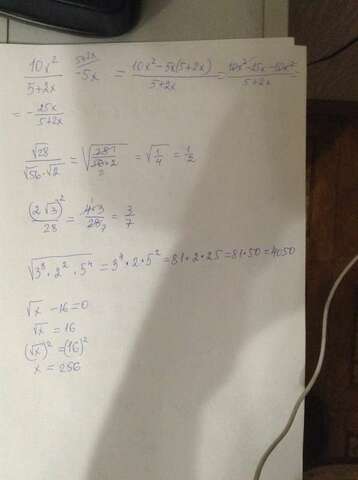 10x² / 5+2x - 5x (5+2x = (10x² - 5x(5+2x)) / 5+2x = (10x² - 25x - 10x²) / 5+2x =
= - 25x / 5+2x
√28 / √56·√2 = √(28 1 / 56·2 2) = √(1/4) = 1/2
(2√3)² / 28 = 4·3 / 28 7 = 3/7
√3⁸·2²·5⁴ = 3⁴·2·5² = 81·2·25 = 81·50 = 4050
√x - 16 = 0
√x = 16
(√x)² = (16)²
x = 256